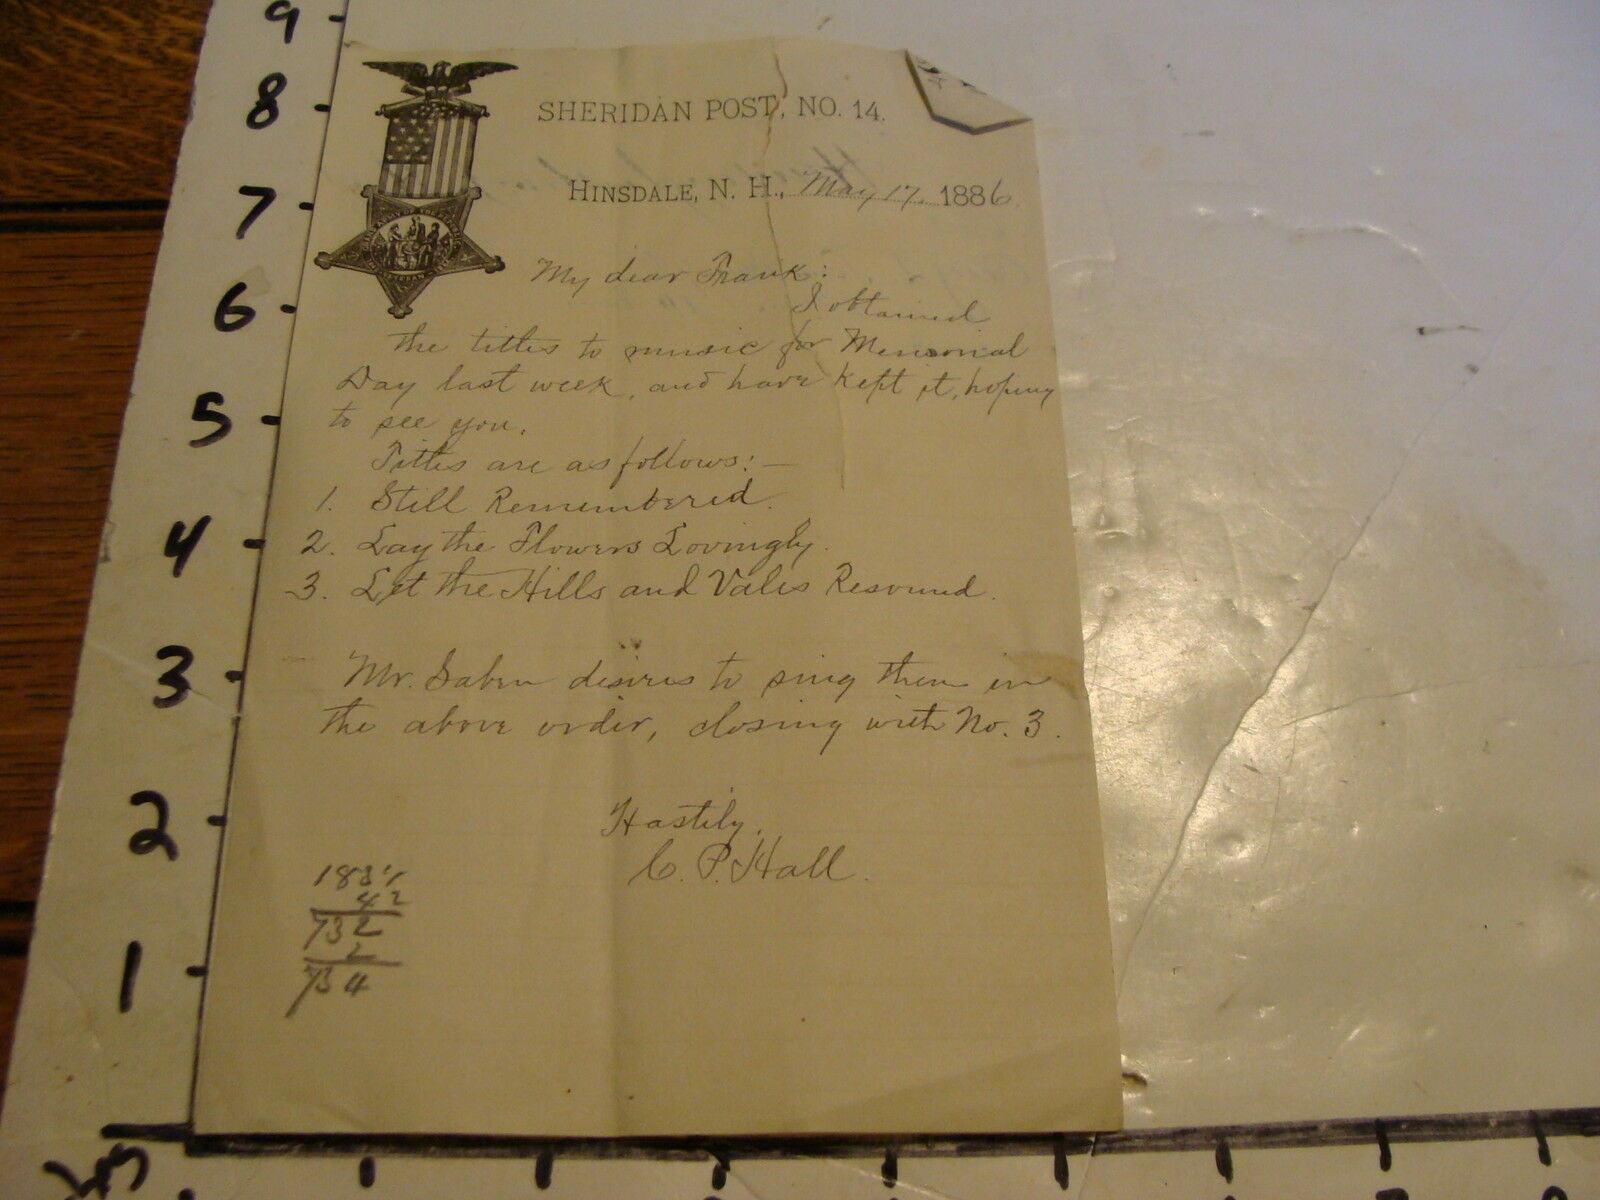 9
8
7
6
5
4
3
2
1
SHERIDAN POST, NO. 14.
HINSDALE, N. H., May 17, 1886
My dear Frank:
I obtained
the titles to music for Memorial
Day last week, and have kept it, hoping
to see you.
Titles are as follows:—
1. Still Remembered.
2. Lay the Flowers Lovingly.
3. Let the Hills and Vales Resound.
Mr. Sabin desires to sing them in
the above order, closing with No. 3.
Hastily,
C. P. Hall.
42
732
2
734